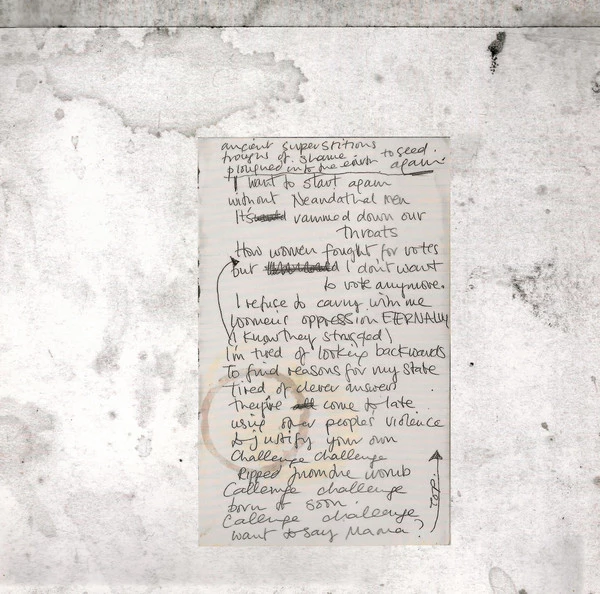 ancient superstitions
troughs of shame to seed.
ploughed into the earth again
I want to start again
without Neandathal men
It's rammed down our
throats
How women fought for votes
but I don't want
to vote anymore.
I refuse to carry with me
womens oppression ETERNALLY
I know they struggled
I'm tired of looking backwards
To find reasons for my state
tired of clever answers
they're all come to late
using other peoples violence
to justify your own
Challenge challenge
Ripped from the womb
Callenge challenge
born to soon.
Callenge challenge
want to say Mama?
TOP.